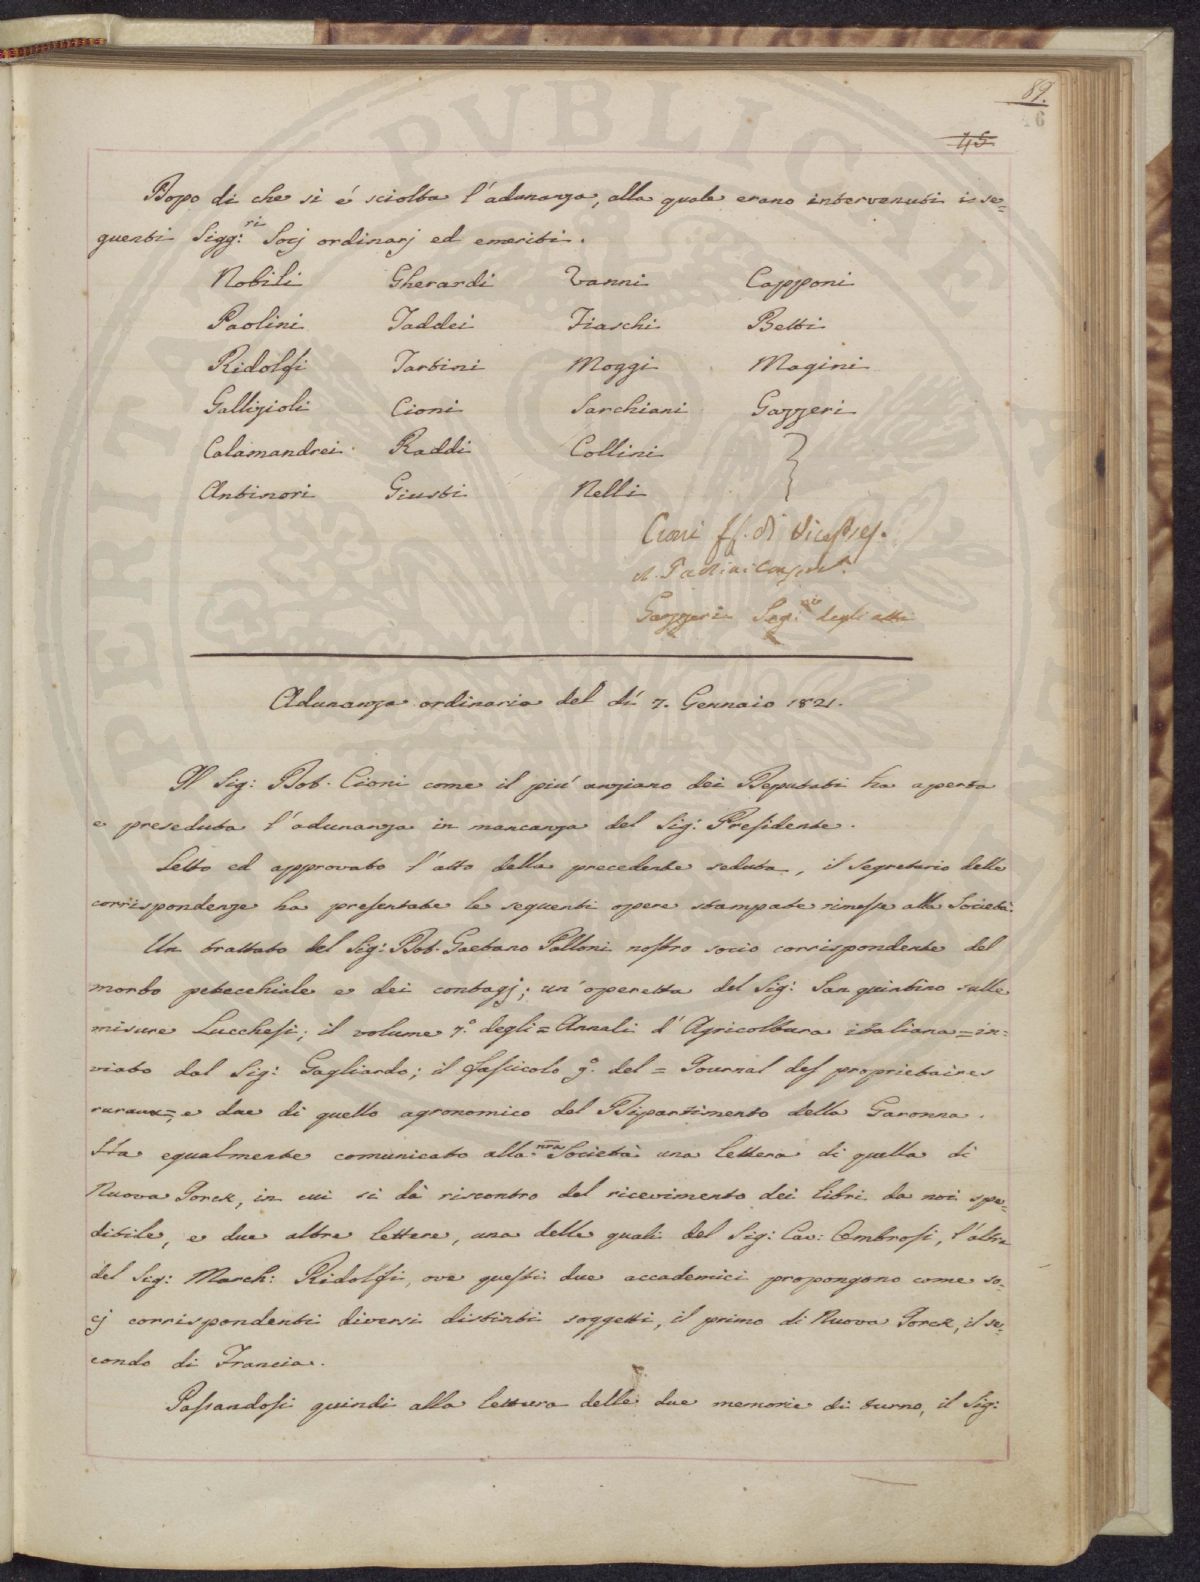 89.
46
45
Dopo di che si é sciolta l'adunanza, alla quale erano intervenuti i se=
guenti Sigg:ri Socj ordinarj ed emeriti.
Nobili Gherardi Vanni Capponi
Paolini Taddei Fiaschi Betti
Ridolfi Tartini Moggi Magini
Gallizioli Cioni Sarchiani Gazzeri
Calamandrei Raddi Collini
Antinori Giusti Nelli
Cioni ff. di Vicepres.
Gazzeri Seg:rio degli atti
Adunanza ordinaria del dí 7. Gennaio 1821.
Il Sig: Dot. Cioni come il piú anziano dei Deputati ha aperta
e preseduta l'adunanza in mancanza del Sig: Presidente.
Letto ed approvato l'atto della precedente seduta, il Segretario delle
corrispondenze ha presentate le seguenti opere stampate rimesse alla Società.
Un trattato del Sig: Dot. Gaetano Palloni nostro socio corrispondente del
morbo petecchiale e dei contagj; un'operetta del Sig: San quintino sulle
misure Lucchesi; il volume 7.o degli = Annali d'Agricoltura italiana = in=
viato dal Sig: Gagliardo; il fascicolo 9.o del = Journal des proprietaires
ruraux =, e due di quello agronomico del Dipartimento della Garonna.
Ha egualmente comunicato alla nra Società una lettera di quella di
Nuova Jorck, in cui si dà riscontro del ricevimento dei libri da noi spe=
ditile, e due altre lettere, una delle quali del Sig: Cav: Ombrosi, l'altra
del Sig: March: Ridolfi, ove questi due accademici propongono come so=
cj corrispondenti diversi distinti soggetti, il primo di Nuova Jorck, il se=
condo di Francia.
Passandosi quindi alla lettura delle due memorie di turno, il Sig: